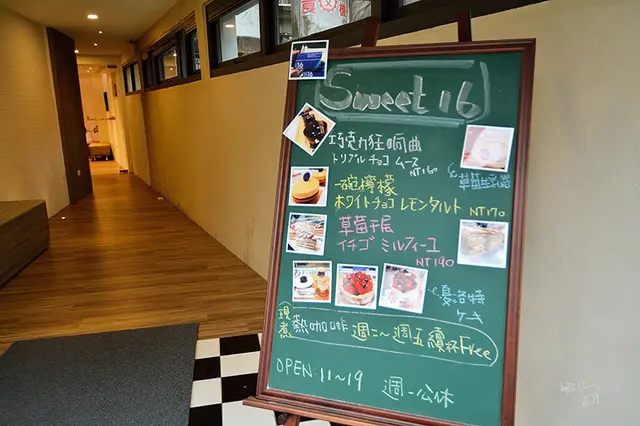 Sweet 16
巧克力狂响曲
トリプルチョコ ムース NT160
一碗檸檬
ホワイトチョコ レモンタルト NT170
草莓千層
イチゴ ミルフィーユ
NT190
夏洛特
ケーキ
現煮 熱咖啡 週二~週五 續杯Free
OPEN:11~19 週一公休